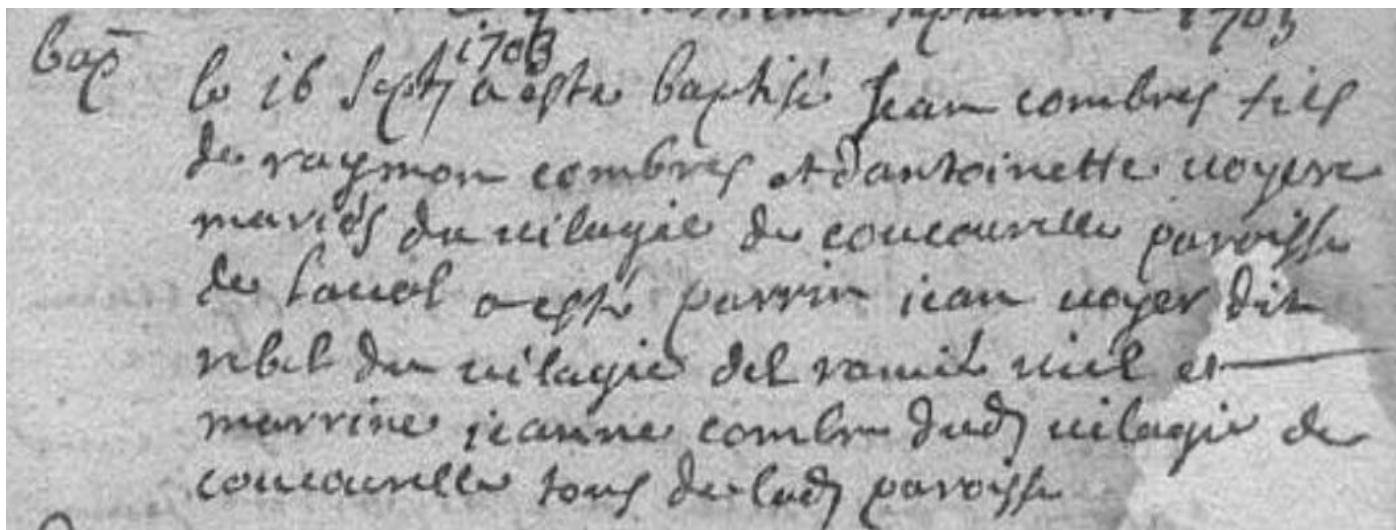 septembre 1703
bap
1703
le 16 sept a esté baptisé Jean combres fils
de raymon combres et dantoinette uoyere
mariés du uilagie de coucourelle paroisse
de laual a esté parrin iean uoyer dit
rebel du uilagie del uiel et
marrine ieanne combre dud uilagie de
coucourelle tous de lad paroisse